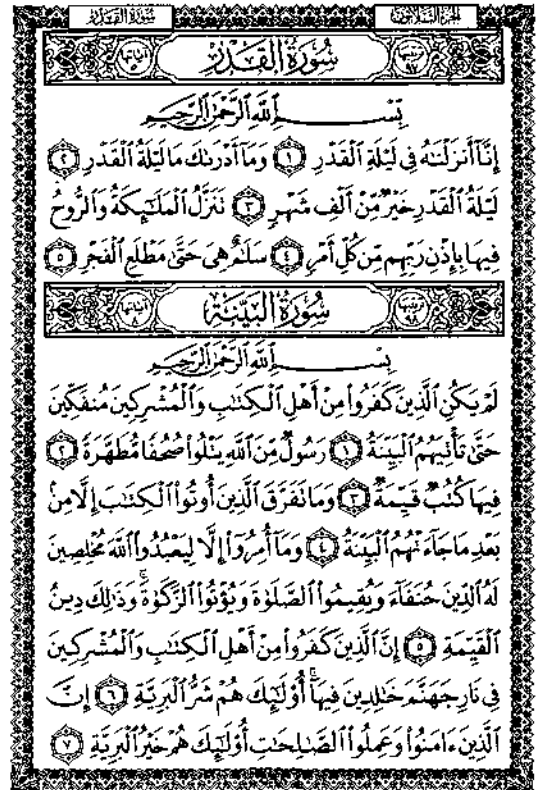 سُورَةُ القَدْرِ الجُزْءُ الثَّلَاثُونَ
سُورَةُ القَدْرِ
بِسْمِ ٱللَّهِ ٱلرَّحْمَٰنِ ٱلرَّحِيمِ
إِنَّآ أَنزَلْنَٰهُ فِى لَيْلَةِ ٱلْقَدْرِ ١ وَمَآ أَدْرَىٰكَ مَا لَيْلَةُ ٱلْقَدْرِ ٢
لَيْلَةُ ٱلْقَدْرِ خَيْرٌ مِّنْ أَلْفِ شَهْرٍ ٣ تَنَزَّلُ ٱلْمَلَٰٓئِكَةُ وَٱلرُّوحُ
فِيهَا بِإِذْنِ رَبِّهِم مِّن كُلِّ أَمْرٍ ٤ سَلَٰمٌ هِىَ حَتَّىٰ مَطْلَعِ ٱلْفَجْرِ ٥
سُورَةُ البَيِّنَةِ
بِسْمِ ٱللَّهِ ٱلرَّحْمَٰنِ ٱلرَّحِيمِ
لَمْ يَكُنِ ٱلَّذِينَ كَفَرُوا۟ مِنْ أَهْلِ ٱلْكِتَٰبِ وَٱلْمُشْرِكِينَ مُنفَكِّينَ
حَتَّىٰ تَأْتِيَهُمُ ٱلْبَيِّنَةُ ١ رَسُولٌ مِّنَ ٱللَّهِ يَتْلُوا۟ صُحُفًا مُّطَهَّرَةً ٢
فِيهَا كُتُبٌ قَيِّمَةٌ ٣ وَمَا تَفَرَّقَ ٱلَّذِينَ أُوتُوا۟ ٱلْكِتَٰبَ إِلَّا مِنۢ
بَعْدِ مَا جَآءَتْهُمُ ٱلْبَيِّنَةُ ٤ وَمَآ أُمِرُوٓا۟ إِلَّا لِيَعْبُدُوا۟ ٱللَّهَ مُخْلِصِينَ
لَهُ ٱلدِّينَ حُنَفَآءَ وَيُقِيمُوا۟ ٱلصَّلَوٰةَ وَيُؤْتُوا۟ ٱلزَّكَوٰةَ ۚ وَذَٰلِكَ دِينُ
ٱلْقَيِّمَةِ ٥ إِنَّ ٱلَّذِينَ كَفَرُوا۟ مِنْ أَهْلِ ٱلْكِتَٰبِ وَٱلْمُشْرِكِينَ
فِى نَارِ جَهَنَّمَ خَٰلِدِينَ فِيهَآ ۚ أُو۟لَٰٓئِكَ هُمْ شَرُّ ٱلْبَرِيَّةِ ٦ إِنَّ
ٱلَّذِينَ ءَامَنُوا۟ وَعَمِلُوا۟ ٱلصَّٰلِحَٰتِ أُو۟لَٰٓئِكَ هُمْ خَيْرُ ٱلْبَرِيَّةِ ٧